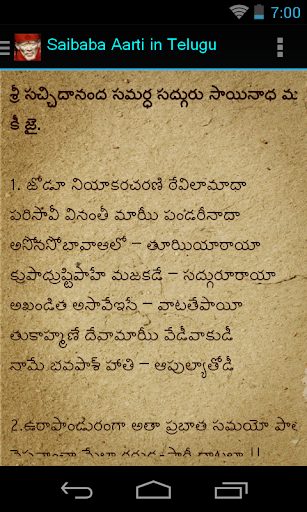 7:00
Saibaba Aarti in Telugu
శ్రీ సచ్చిదానంద సమర్ధ సద్గురు సాయినాధ మ
కీ జై.
1. జోడూ నియాకరచరణి ఠేవిలామాదా
పరిసావీ వినంతీ మాఝీ పండరీనాదా
అసోనసోబావాఆలో – తూఝియాఠాయా
క్రుపాద్రుష్టిపాహే మజకడే – సద్గురూరాయా
అఖండిత అసావేఇసే – వాటతేపాయీ
తుకాహ్మణే దేవామాఝీ వేడీవాకుడీ
నామే భవపాశ్ హాతి – ఆపుల్యాతోడీ
2.ఉఠాపాండురంగా అతా ప్రభాత సమయో